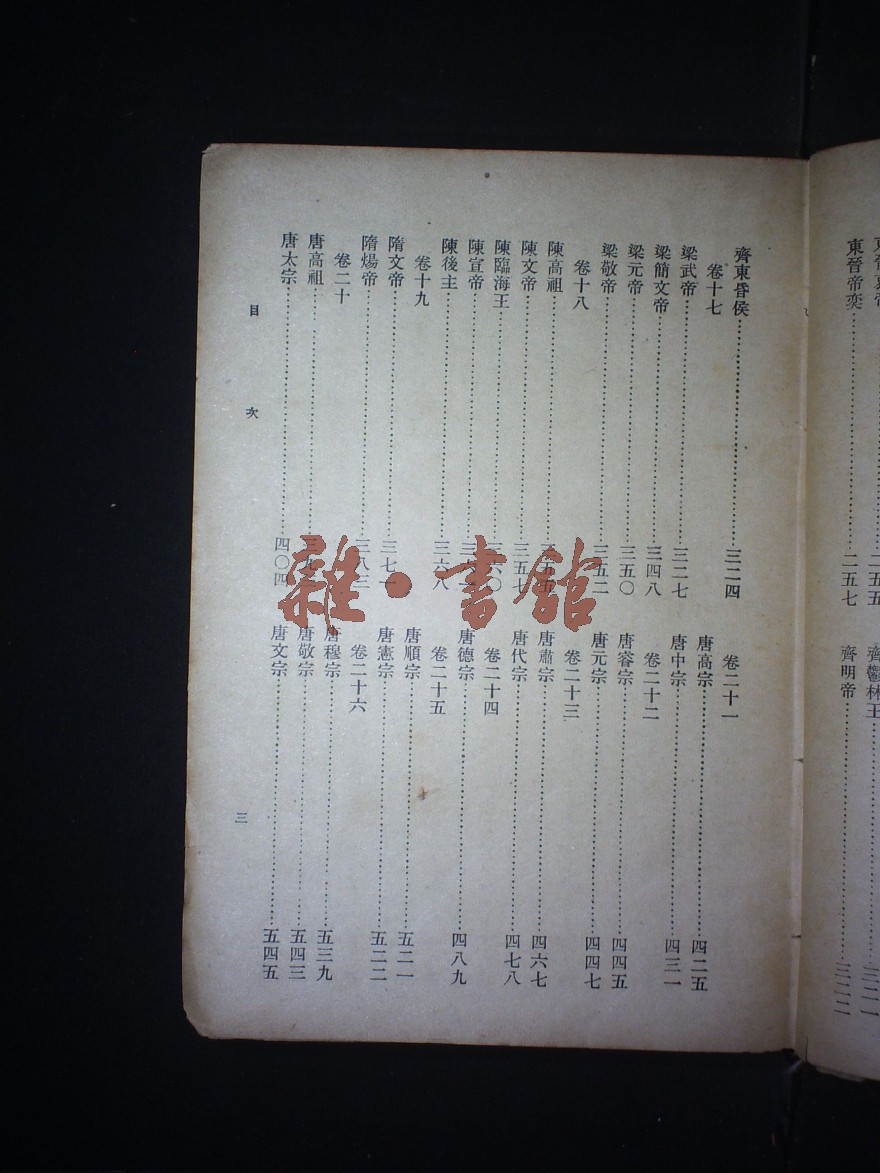 二五五
東晉帝奕……二五七
齊鬱林王……三二一
齊明帝……三二二
齊東昏侯……三二四
卷十七
梁武帝……三二七
梁簡文帝……三四八
梁元帝……三五〇
梁敬帝……三五二
卷十八
陳高祖……
陳文帝……三五七
陳臨海王……三六〇
陳宣帝……
陳後主……三六八
卷十九
隋文帝……三七一
隋煬帝……三八三
卷二十
唐高祖……
唐太宗……四〇四
卷二十一
唐高宗……四二五
唐中宗……四三一
卷二十二
唐睿宗……四四五
唐元宗……四四七
卷二十三
唐肅宗……四六七
唐代宗……四七八
卷二十四
唐德宗……四八九
卷二十五
唐順宗……五二一
唐憲宗……五二二
卷二十六
唐穆宗……五三九
唐敬宗……五四三
唐文宗……五四五
目次
三
雜·書館